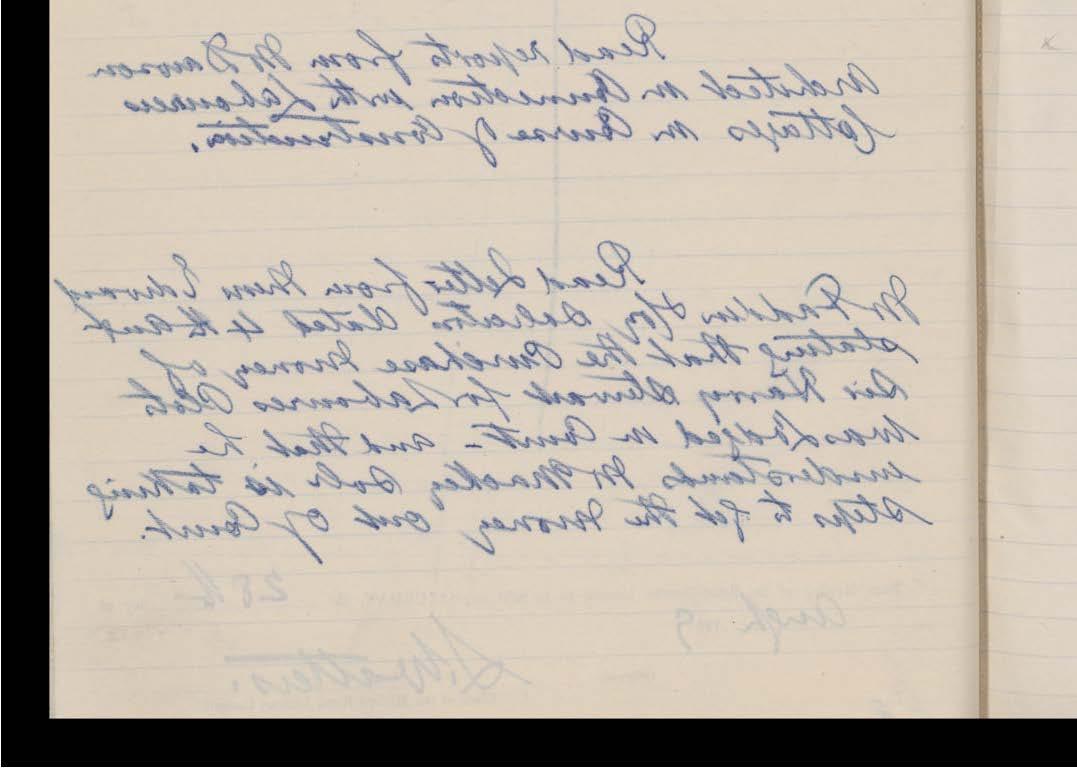 Read reports from Mr Dawson
Architect in Connection with Labourers
Cottages in Course of Construction.
Read Letter from Messrs Edward
McFadden &Coy Solicitor dated 4th Augt
stating that the Purchase Money of
Sir Harry Stewart for Labourers Plots
was Lodged in Court - and that he
understands Mr Mackey Solr is taking
steps to get the Money out of Court.
28th
Augt 9